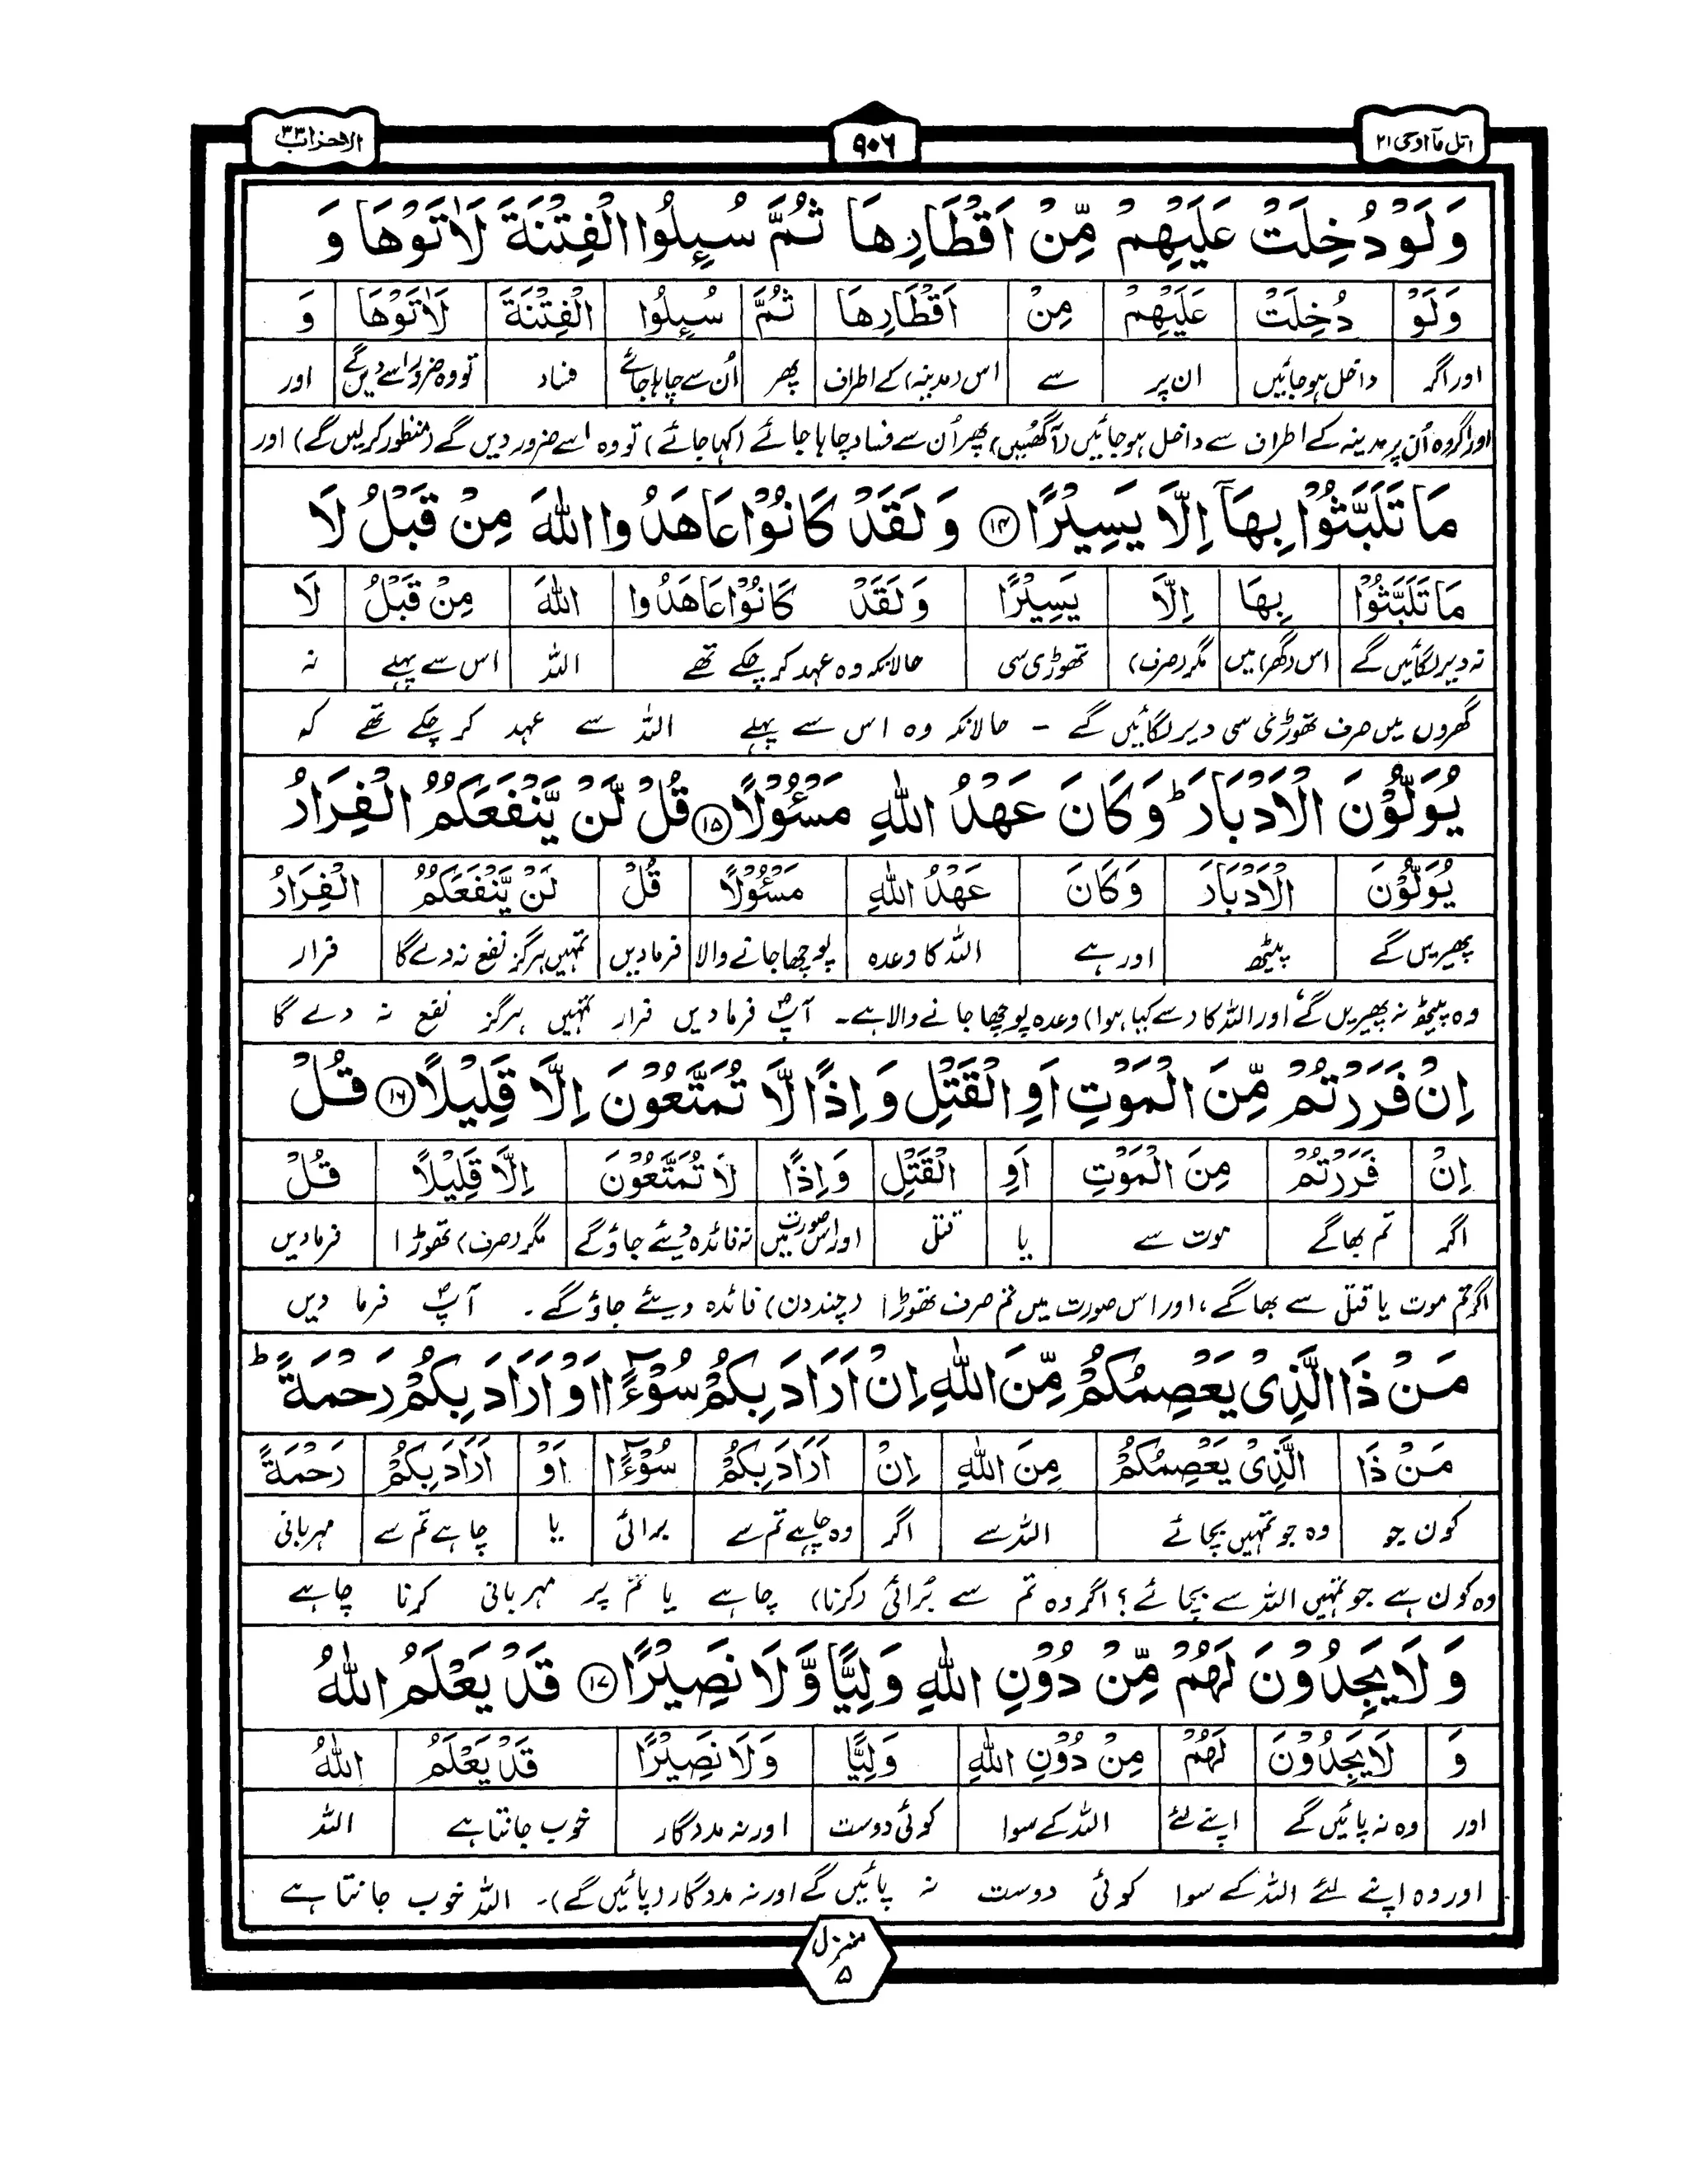 اتل مآ اوحی ۲۱ ۹۰۶ الاحزاب ۳۳
وَلَوْ دُخِلَتْ عَلَيْهِمْ مِّنْ اَقْطَارِهَا ثُمَّ سُىِٕلُوا الْفِتْنَةَ لَاٰتَوْهَا وَ
وَلَوْ دُخِلَتْ عَلَيْهِمْ مِنْ اَقْطَارِهَا ثُمَّ سُىِٕلُوا الْفِتْنَةَ لَاٰتَوْهَا وَ
اور اگر داخل ہوجائیں ان پر سے اس (مدینہ) کے اطراف پھر اُن سے چاہا جائے فساد تو وہ ضرور اسے دیں گے اور
اور اگر وہ اُن پر مدینہ کے اطراف سے داخل ہوجائیں (آگھسیں) پھر اُن سے فساد چاہا جائے (کہا جائے) تو وہ اسے ضرور دیں گے (منظور کرلیں گے) اور
مَا تَلَبَّثُوْا بِهَآ اِلَّا يَسِيْرًا ۱۴ وَلَقَدْ كَانُوْا عَاهَدُوا اللّٰهَ مِنْ قَبْلُ لَا
مَا تَلَبَّثُوْا بِهَا اِلَّا يَسِيْرًا وَلَقَدْ كَانُوْا عَاهَدُوا اللّٰهَ مِنْ قَبْلُ لَا
نہ دیر لگائیں گے اس (گھر) میں مگر (صرف) تھوڑی سی حالانکہ وہ عہد کر چکے تھے اللہ اس سے پہلے نہ
گھروں میں صرف تھوڑی سی دیر لگائیں گے - حالانکہ وہ اس سے پہلے اللہ سے عہد کر چکے تھے کہ
يُوَلُّوْنَ الْاَدْبَارَ ؕ وَكَانَ عَهْدُ اللّٰهِ مَسْـُٔوْلًا ۱۵ قُلْ لَّنْ يَّنْفَعَكُمُ الْفِرَارُ
يُوَلُّوْنَ الْاَدْبَارَ وَكَانَ عَهْدُ اللّٰهِ مَسْـُٔوْلًا قُلْ لَنْ يَّنْفَعَكُمُ الْفِرَارُ
پھیریں گے پیٹھ اور ہے اللہ کا وعدہ پوچھا جانے والا فرمادیں تمہیں ہرگز نفع نہ دے گا فرار
وہ پیٹھ نہ پھیریں گے، اور اللہ کا (سے کیا ہوا) وعدہ پوچھا جانے والا ہے۔ آپؐ فرمادیں فرار تمہیں ہرگز نفع نہ دے گا
اِنْ فَرَرْتُمْ مِّنَ الْمَوْتِ اَوِ الْقَتْلِ وَاِذًا لَّا تُمَتَّعُوْنَ اِلَّا قَلِيْلًا ۱۶ قُلْ
اِنْ فَرَرْتُمْ مِنَ الْمَوْتِ اَوِ الْقَتْلِ وَاِذًا لَا تُمَتَّعُوْنَ اِلَّا قَلِيْلًا قُلْ
اگر تم بھاگے موت سے یا قتل اور اس صورت میں نہ فائدہ دیئے جاؤگے مگر (صرف) تھوڑا فرمادیں
اگر تم موت یا قتل سے بھاگے، اور اس صورت میں تم صرف تھوڑا (چند دن) فائدہ دیئے جاؤگے۔ آپؐ فرما دیں
مَنْ ذَا الَّذِىْ يَعْصِمُكُمْ مِّنَ اللّٰهِ اِنْ اَرَادَ بِكُمْ سُوْٓءًا اَوْ اَرَادَ بِكُمْ رَحْمَةً ؕ
مَنْ ذَا الَّذِىْ يَعْصِمُكُمْ مِنَ اللّٰهِ اِنْ اَرَادَ بِكُمْ سُوْٓءًا اَوْ اَرَادَ بِكُمْ رَحْمَةً
کون جو وہ جو تمہیں بچائے اللہ سے اگر وہ چاہے تم سے برائی یا چاہے تم سے مہربانی
وہ کون ہے جو تمہیں اللہ سے بچائے؟ اگر وہ تم سے بُرائی (کرنا) چاہے یا تم پر مہربانی کرنا چاہے
وَلَا يَجِدُوْنَ لَهُمْ مِّنْ دُوْنِ اللّٰهِ وَلِيًّا وَّلَا نَصِيْرًا ۱۷ قَدْ يَعْلَمُ اللّٰهُ
وَ لَا يَجِدُوْنَ لَهُمْ مِنْ دُوْنِ اللّٰهِ وَلِيًّا وَلَا نَصِيْرًا قَدْ يَعْلَمُ اللّٰهُ
اور وہ نہ پائیں گے اپنے لئے اللہ کے سوا کوئی دوست اور نہ مددگار خوب جانتا ہے اللہ
اور وہ اپنے لئے اللہ کے سوا کوئی دوست نہ پائیں گے اور نہ مددگار (پائیں گے)۔ اللہ خوب جانتا ہے
منزل
۵